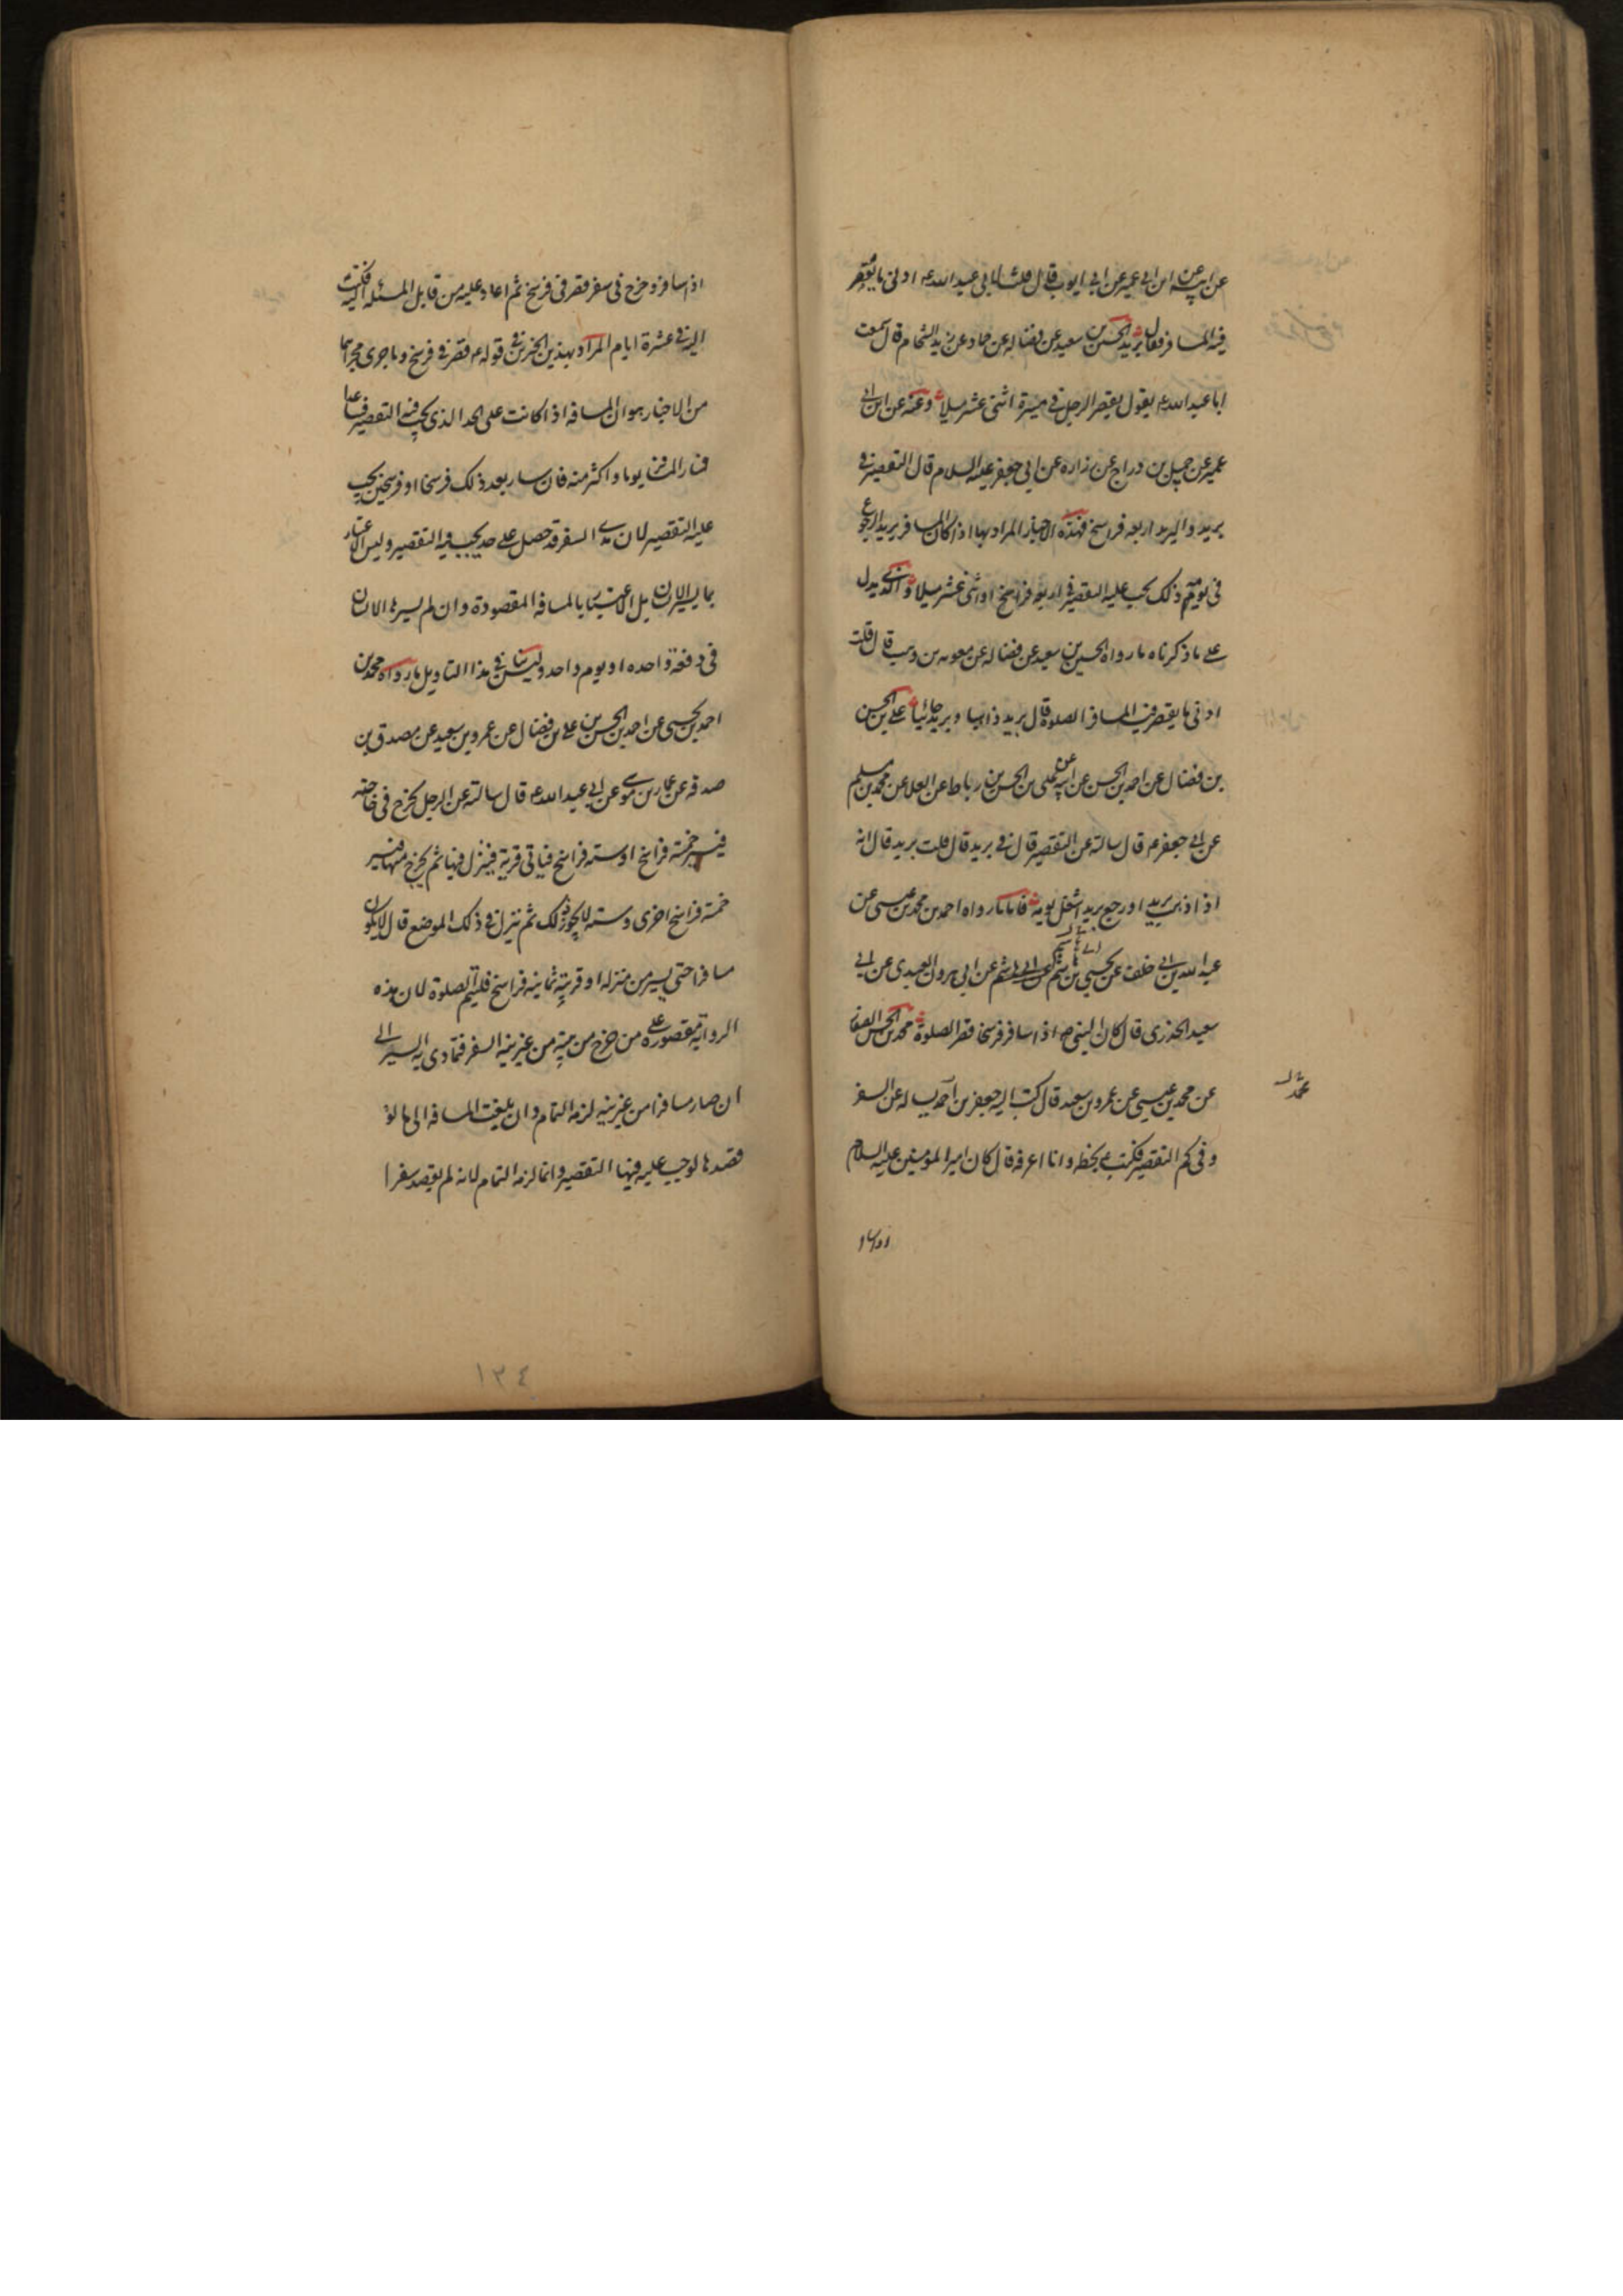 عن ابيه عن ابن ابى عمير عن ابى ايوب قال قلت لابى عبد الله ع ادنى ما يقصر
فيه المسافر فقال بريد الحسين بن سعيد عن فضاله عن حماد عن زيد الشحام قال سمعت
ابا عبد الله ع يقول يقصر الرجل فى مسيرة اثنى عشر ميلا وعنه عن ابن ابى
عمير عن جميل بن دراج عن زراره عن ابى جعفر عليه السلام قال التقصير فى
بريد والبريد اربعه فراسخ فهذه الاخبار المراد بها اذا كان المسافر يريد الرجوع
فى يومه ذلك يجب عليه التقصير فى اربعه فراسخ او اثنى عشر ميلا والذى يدل
على ما ذكرناه ما رواه الحسين بن سعيد عن فضاله عن معويه بن وهب قال قلت
ادنى ما يقصر فيه المسافر الصلوة قال بريد ذاهبا وبريد جائيا على بن الحسن
بن فضال عن احمد بن الحسن عن ابيه عن على بن الحسن بن رباط عن العلا عن محمد بن مسلم
عن ابى جعفر ع قال سالته عن التقصير قال فى بريد قال قلت بريد قال انه
اذا ذهب بريدا ورجع بريدا شغل يومه فاما ما رواه احمد بن محمد بن عيسى عن
عبد الله بن ابى خلف عن يحيى بن هاشم عن ابى هرون العبدى عن ابى
سعيد الخدرى قال كان النبى ص اذا سافر فرسخا قصر الصلوة محمد بن الحسن الصفار
عن محمد بن عيسى عن عمرو بن سعيد قال كتب اليه جعفر بن احمد يساله عن السفر
محمد
وفى كم التقصير فكتب ع بخطه وانا اعرفه قال كان امير المؤمنين عليه السلام
اذا سا
اذا سافر وخرج فى سفر قصر فى فرسخ ثم اعاد عليه من قابل المسئله اليه فكتب
اليه فى عشرة ايام المراد بهذين الخبرين فى قوله ع قصر فى فرسخ وما جرى مجراهما
من الاخبار هو ان المسافه اذا كانت على الحد الذى يجب فيه التقصير فصاعدا
فسار المسافر يوما واكثر منه فان سار بعد ذلك فرسخا او فرسخين يجب
عليه التقصير لان مدى السفر قد حصل على حد يجب فيه التقصير وليس الاعتبار
بما يسير الانسان بل الاعتبار بالمسافه المقصودة وان لم يسرها الانسان
فى دفعة واحده او يوم واحد وليس ينافى هذا التاويل ما رواه محمد بن
احمد بن يحيى عن احمد بن الحسن بن على بن فضال عن عمرو بن سعيد عن مصدق بن
صدقه عن عمار بن موسى عن ابى عبد الله ع قال سالته عن الرجل يخرج فى حاجته
فيسير خمسة فراسخ او سته فراسخ فياتى قرية فينزل فيها ثم يخرج منها فيسير
خمسة فراسخ اخرى وسته لا يجوز ذلك ثم ينزل فى ذلك الموضع قال لا يكون
مسافرا حتى يسير من منزله او قريته ثمانيه فراسخ فليتم الصلوة لان هذه
الرواية مقصوره على من خرج من بيته من غير نية السفر فتمادى به السير الى
ان صار مسافرا من غير نيه لزمه التمام وان بلغت المسافه الى ما لو
قصدها لوجب عليه فيها التقصير وانما لزمه التمام لانه لم يقصد سفرا
١٣٤